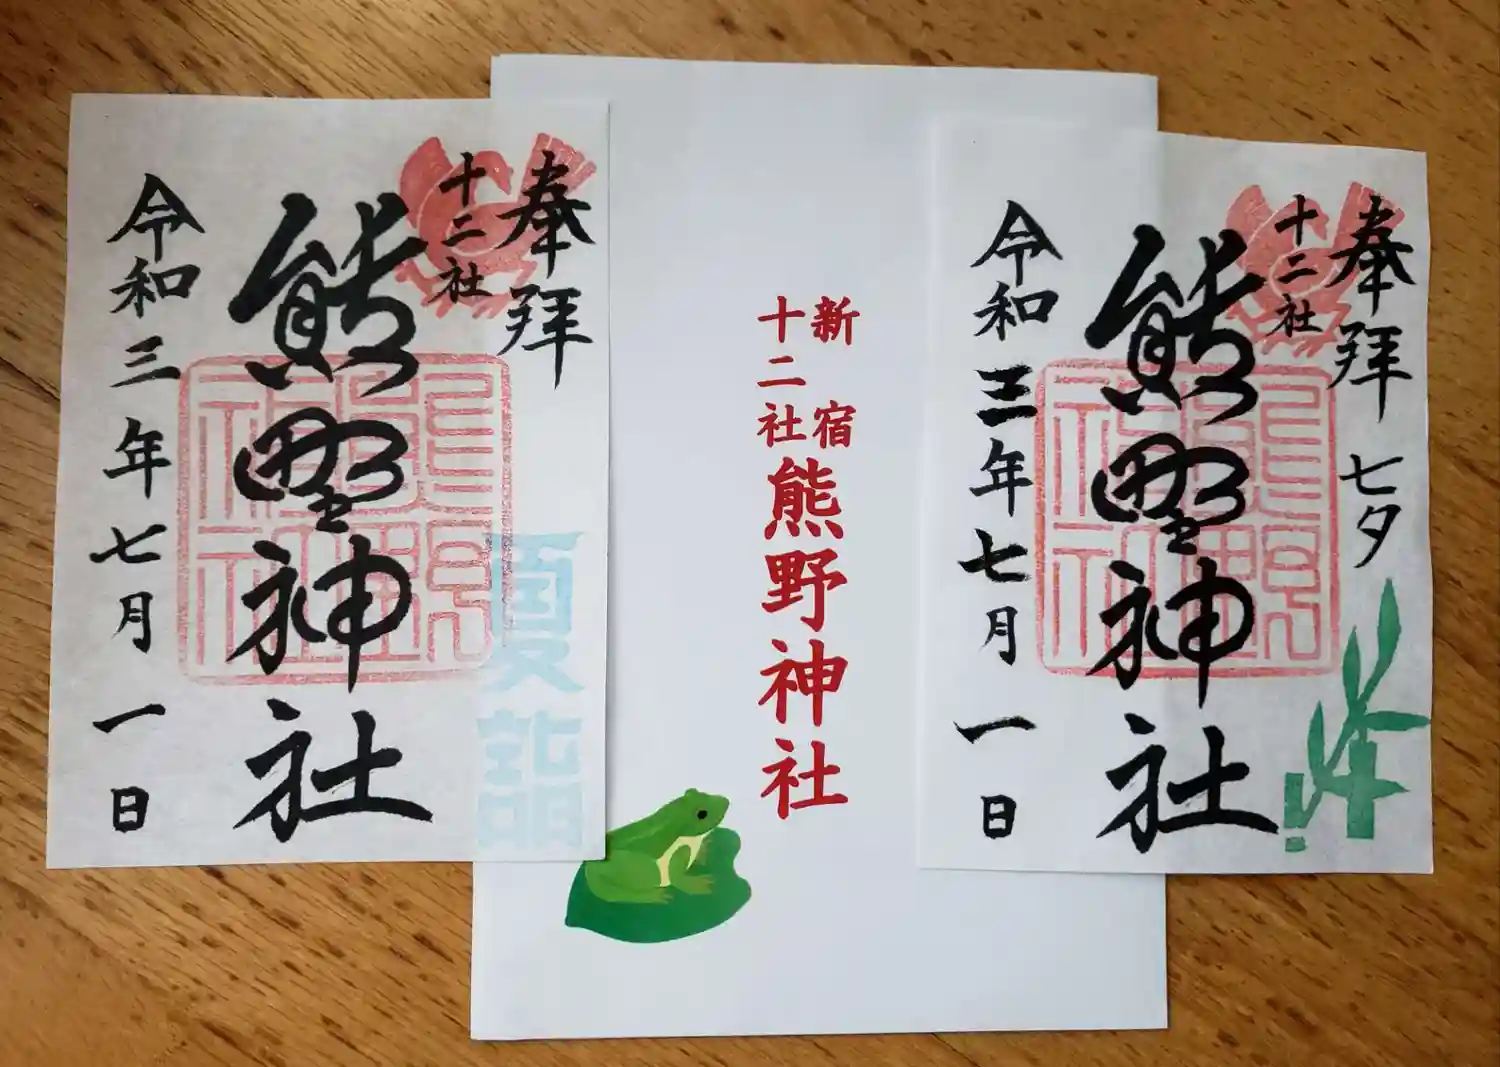 奉拝
夏詣
十二社
熊野神社
令和三年七月一日
新宿
十二社
熊野神社
奉拝 七夕
十二社
熊野神社
令和三年七月一日